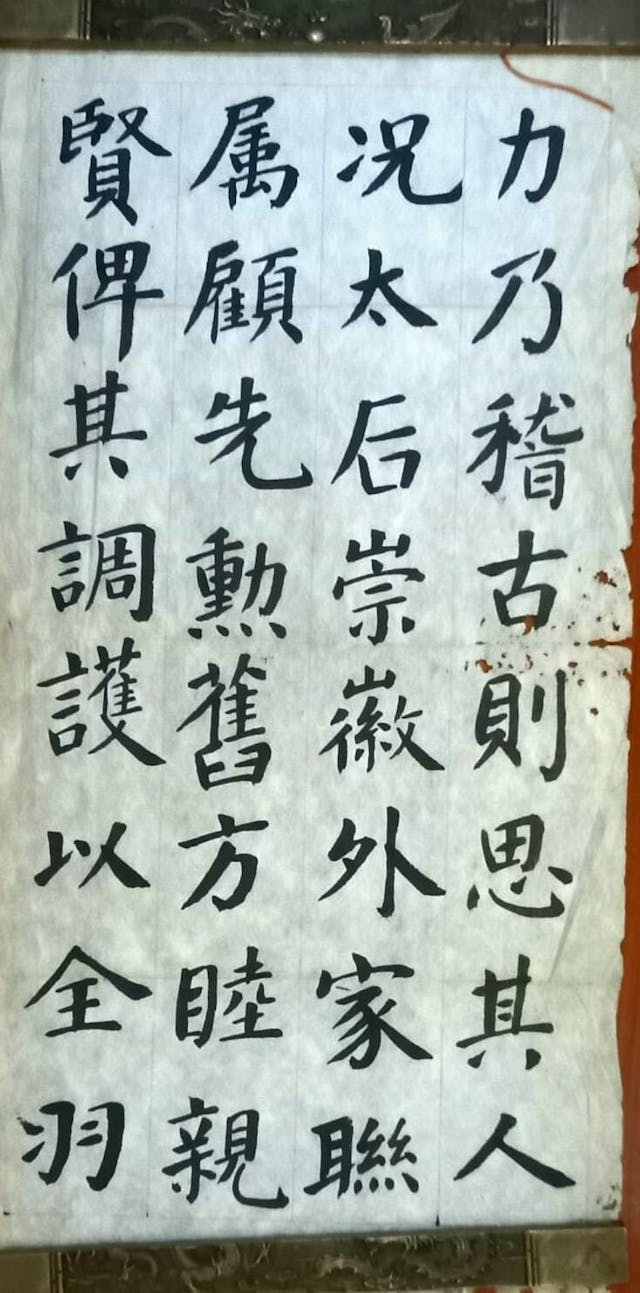 力乃稽古則思其人
况太后崇徽外家聯
属顧先勳舊方睦親
賢俾其調護以全羽